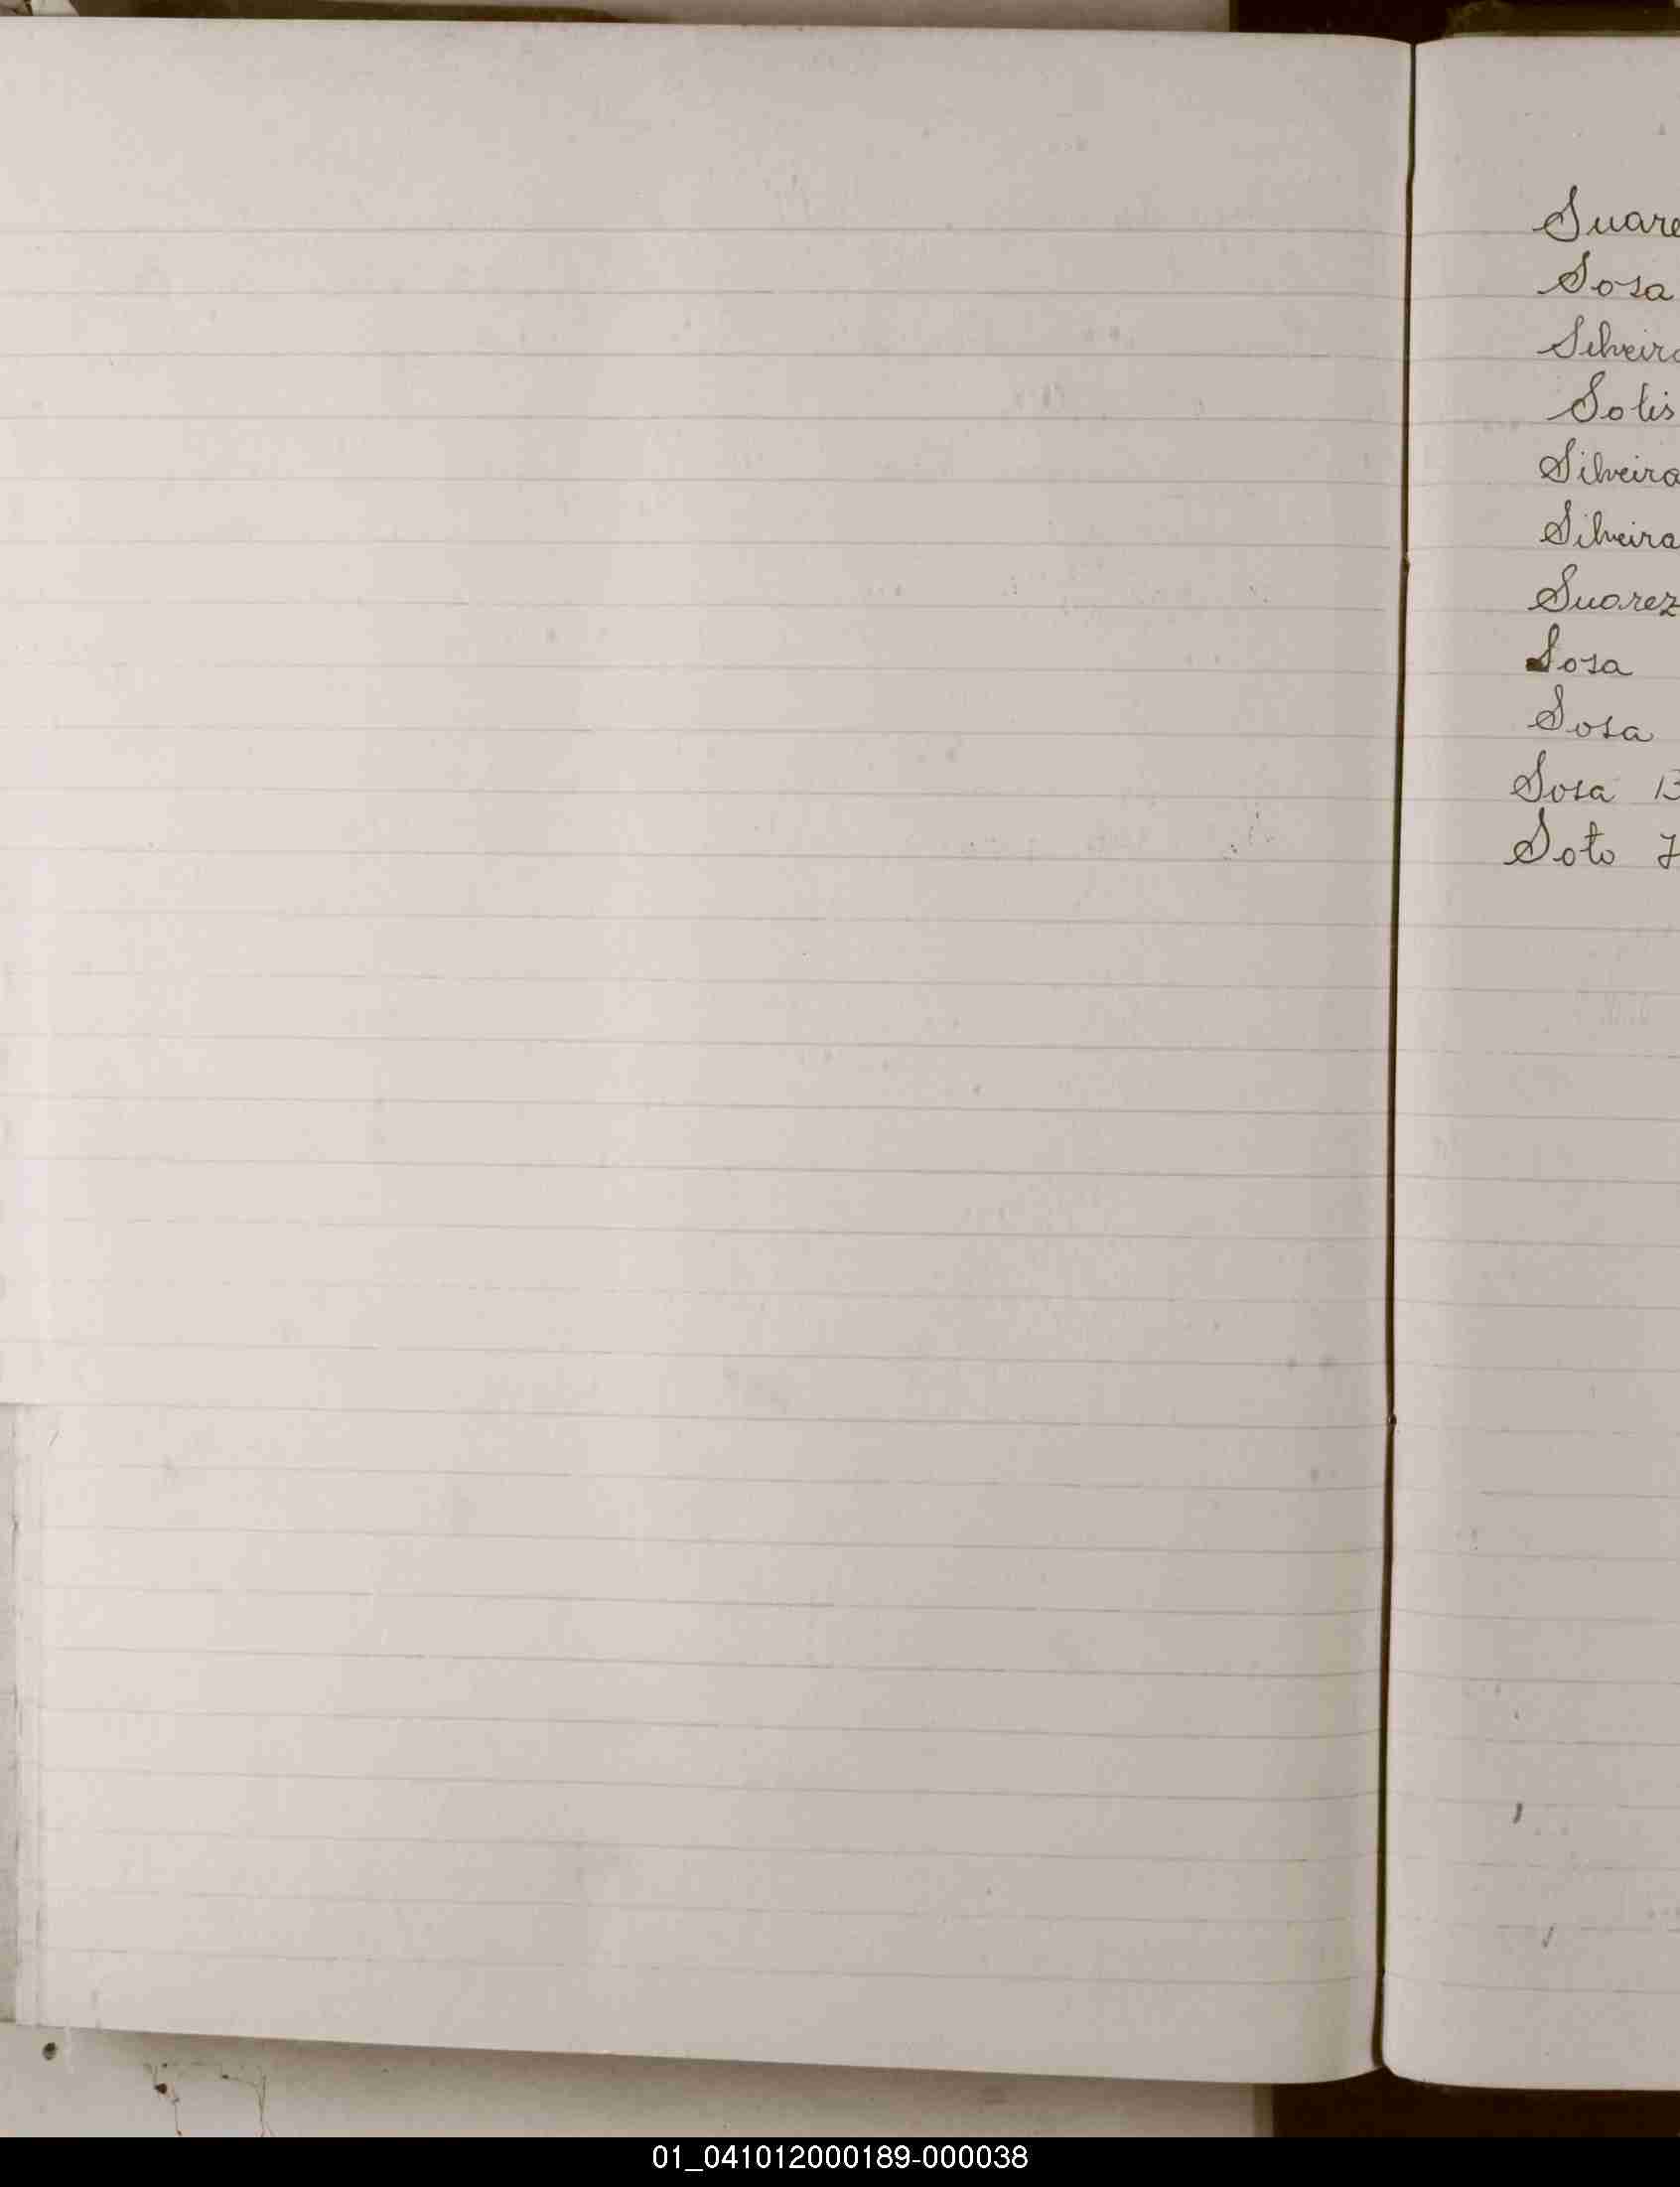 Suare
Sosa
Silveira
Solis
Silveira
Silveira
Suarez
Sosa
Sosa
Sosa B
Soto J
01_041012000189-000038